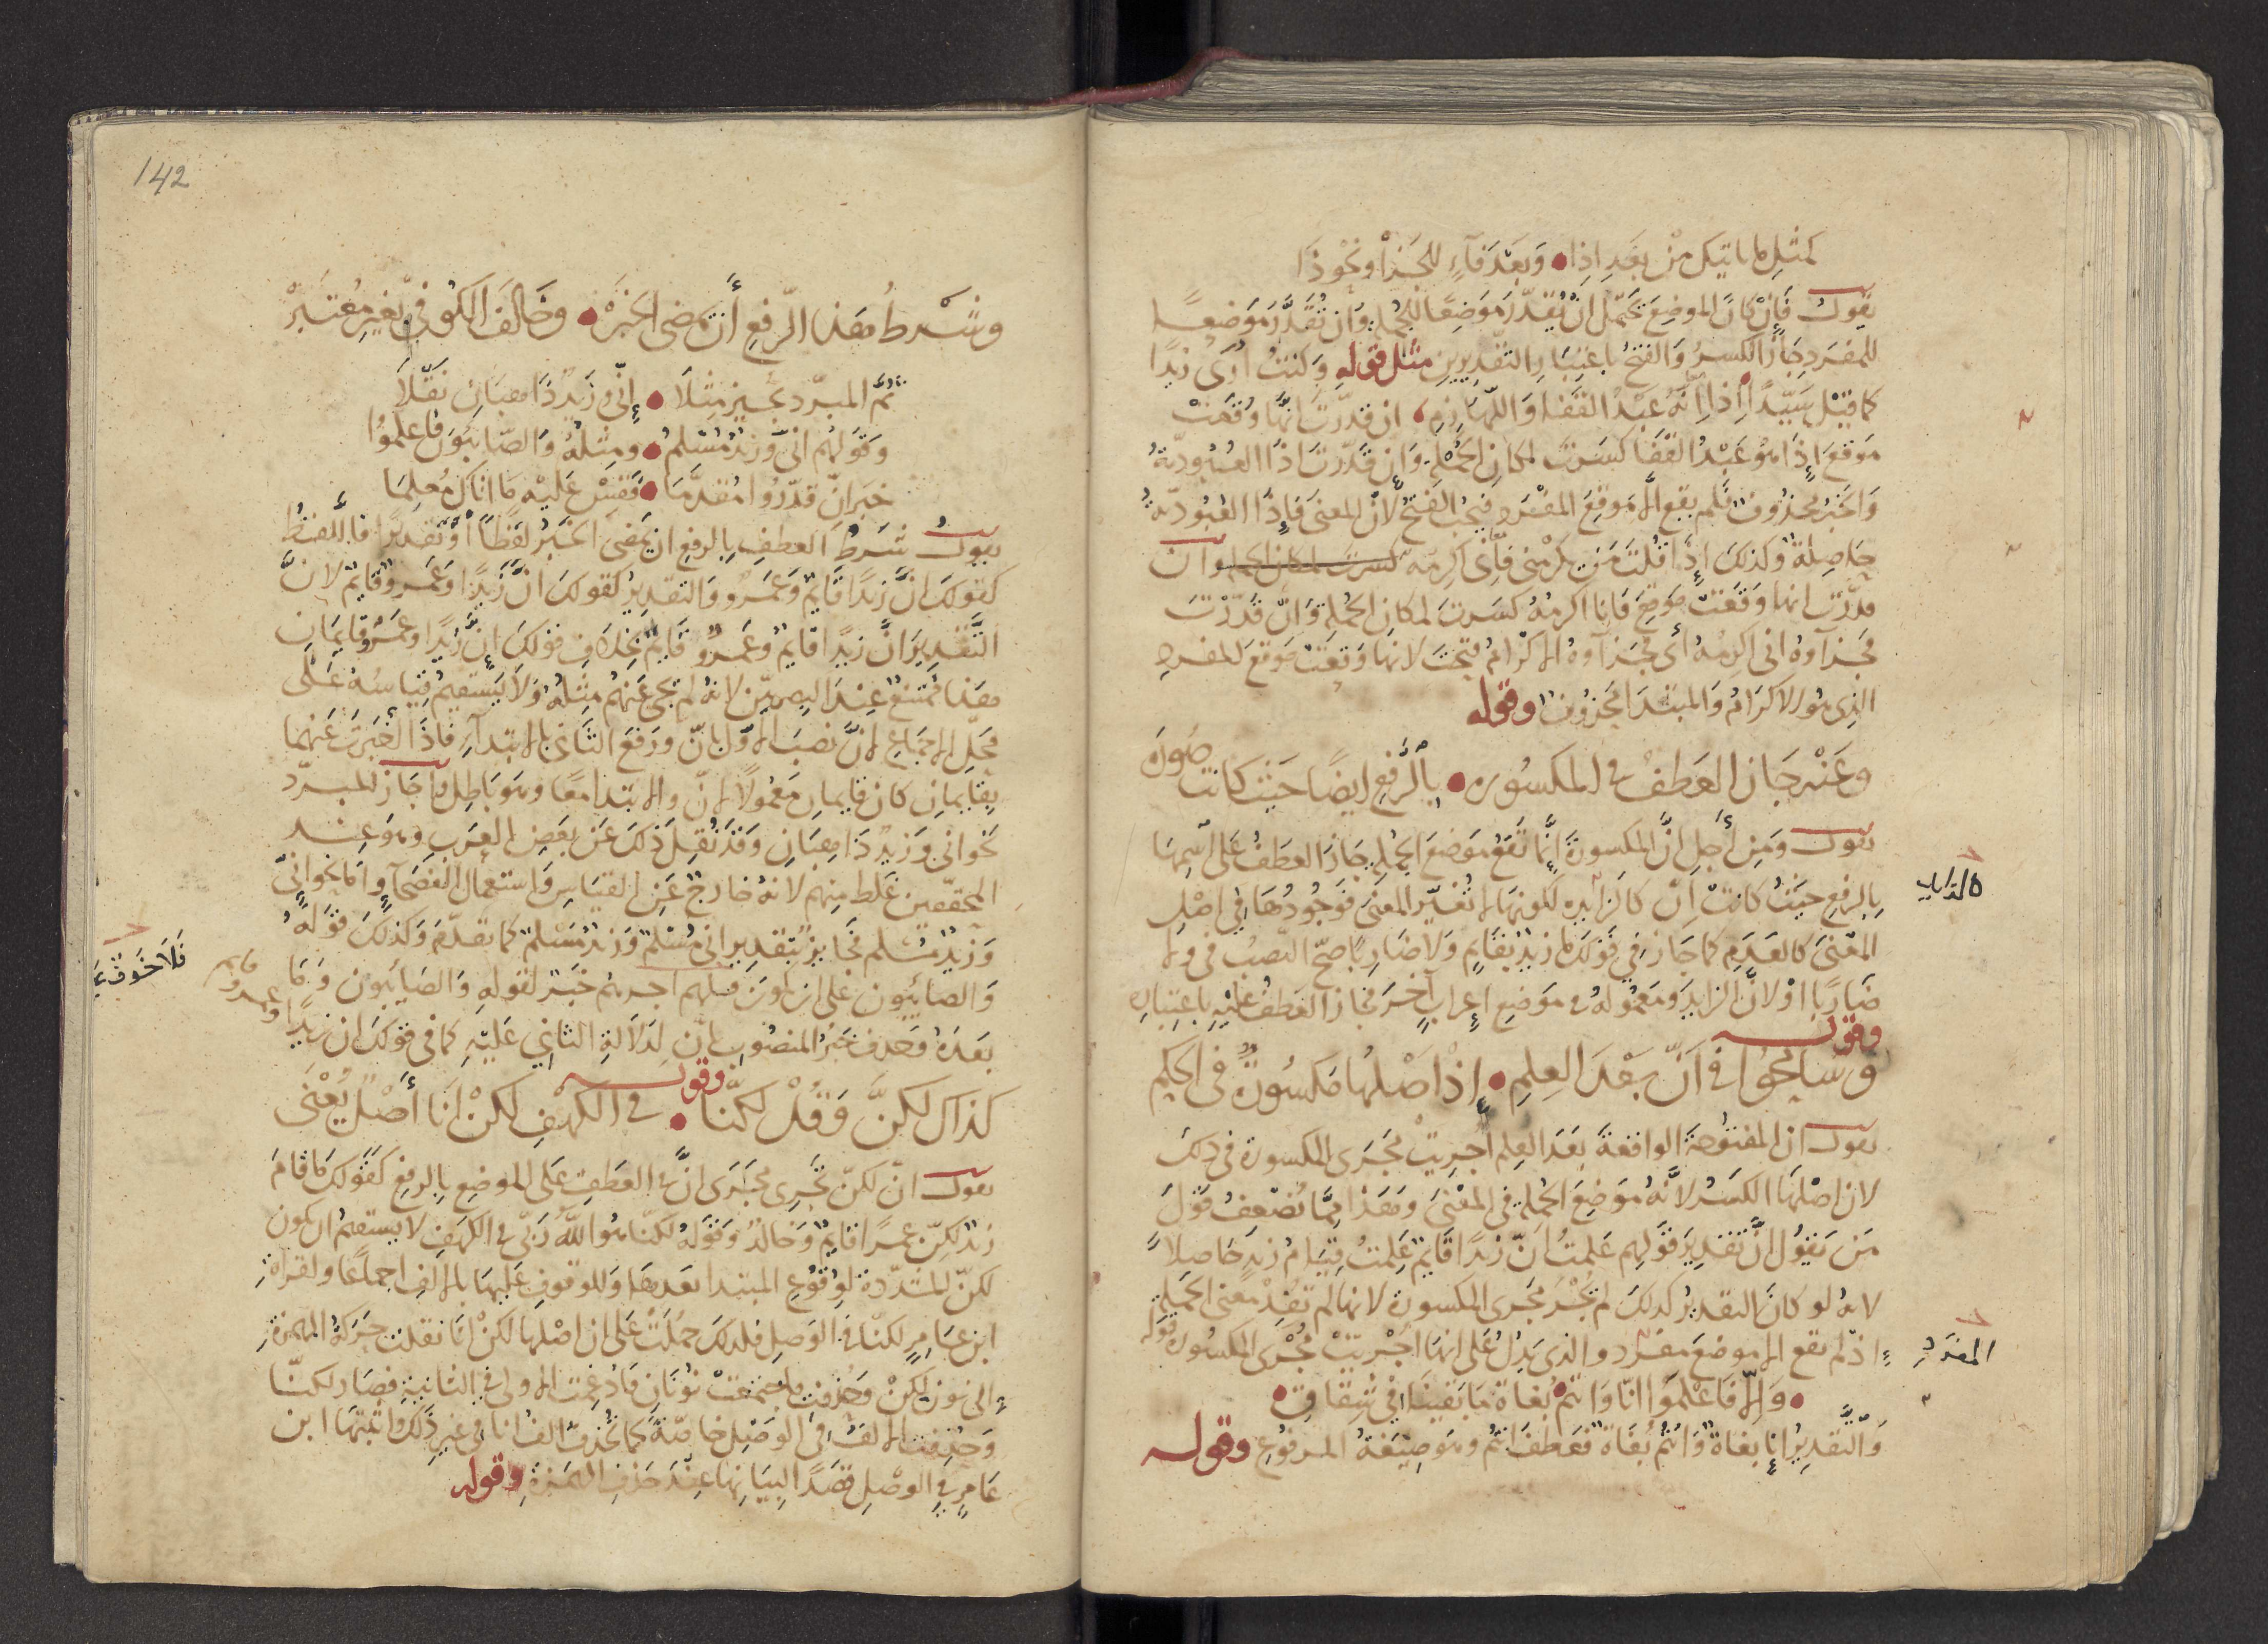 كمثل ما ياتيك من بعد اذا • وَبَعْدَ فَآءٍ للجزا ونحو ذا
يقول فَإِنْ كانَ الموضِعَ يَحتمل انْ يُقَدَّرَ مَوضِعًا للجُملةِ وَان تُقَدَّرَ مَوضِعًا
للمفرَدِ جَازَ الكسرُ وَالفتحُ باعتِبَارِ التقديرينِ مثل قوله وَكنتُ اُرَى زيدًا
كما قيْل سَيّدًا اِذَا اِنَّهُ عَبْدُ القَفَا وَاللّهَازِمِ، ان قدّرتَ انّهَا وُقعَتْ
مَوقعَ إِذَا هُوَ عَبْدُ القَفَا كسَرتَ لمكانِ الجملةِ وَإِن قدّرتَ اذا العُبُودِيّةُ
وَالخبَرُ محذُوفٌ فلم يقع الا مَوقِعَ المفرَدِ فيجبُ الفتحُ لانّ المعنى فَإِذَا العُبُودِيّةُ
حاصِلةٌ وكذلكَ إِذَا قُلتَ مَن يكرمْني فَإِنّي اكرِمُهُ كسرت لمكان الجملة وان
قدّرتَ انها وَقَعَتْ مَوقِعَ فَانا اكرِمُهُ كسَرتَ لمكانِ الجملة وَانْ قدّرْتَ
فجزآوهُ اني اكرِمُهُ أي فجَزآوهُ الاكرَامُ فتحتَ لانها وَقعَت مَوقعَ المفردِ
الذِى هُوَ الاكرَامُ وَالمبتدَا محذُوفٌ وقوله
وعَنْه جَازَ العَطفُ في المكسُورَه • بِالرَّفعِ ايضًا حَيثُ كانت صُورَه
يقول ومَن أَجلِ انَّ المكسورَةَ إِنَّما تَقعُ مَوضعَ الجملةِ جَازَ العطفُ عَلى اسمِهَا
بِالرفعِ حَيْثُ كانتْ اِنّ كالزايِده لكونها لا تُغَيّر المعنَى فوجُودُهَا فِي اصْلِ
المعْنى كالعَدَمِ كما جَازَ فِي قوْلكَ مَا زيدٌ بقايمٍ وَلا ضَارِبًا صَحّ النَّصبُ في ولا
ضَارِبًا اوْ لانَّ الزايِدَ ومَعمُولهُ في مَوضعِ إِعرابٍ آخرَ فجازَ العَطفُ عليْهِ باعتِبَارِهِ
وقوله
وَسَامحُوا في اَنّ بَعْدَ العِلمِ • إِذْ اَصْلُهَا مَكسُورَةٌ في الحكمِ
يقول ان المفتوحَةَ الواقعَةَ بَعَدَ العِلم اجرِيَتْ مجَرَى المكسورة في ذلكَ
لان اصْلهَا الكسْرُ لانَّهُ مَوضِعَ الجملةِ في المعْنَى وهَذا مِمّا يُضْعِفُ قَوْلَ
مَن يَقوُل اِنَّ تقديرَ قوَلهِم عَلِمتُ اَنّ زيدًا قَايِمٌ عَلِمتُ قِيَامَ زيدٍ حَاصِلاً
لانهُ لو كانَ التقديرُ كذلكَ لم تُجْرَ مجْرى المكسورة لانها لم تفِدْ معنى الجملةِ
اذ لم يقع الا موضعَ مفرَد والذي يَدُلّ على انهَا أُجْرِيَتْ مُجْرَى المكسُورَة قوله
• وَالّا فاعْلَمُوْا انّا وَانتم • بُغاةٌ مَا بَقينَا في شِقَاقِ •
وَالتَّقديرُ انا بغاةٌ وَانتم بُغاةٌ فعَطَفَ انتم وهوَ صِيَغةُ المرفُوعِ وقوله
المفرَدِ
142
وشرْطُ هذا الرّفعِ أَن يمضي الخبَرْ • وخَالفَ الكوُفيُّ بغيرِ مُعْتَبرْ
ثمَّ المبرّد يجيز مِثلَا • إِنّي وَزَيدٌ ذَاهِبَانِ نَقلَا
وَقوَلهُم انّي وزيْدٌ مُسْلمُ • ومِثلُهُ وَالصّابِئُونَ فاعلَمُوُا
خبرَ انّ قدّرُوا مُقدَّمَا • فَقِسْ عَليْه مَا اتاكَ مُعلِمَا
يقول شَرطُ العطفِ بِالرفعِ ان يَمضِيَ الخبَرُ لفظًا أوْ تقديرًا فاللَّفظُ
كقولكَ انَّ زيدًا قايِمٌ وَعَمَرٌو وَالتقديرُ كقولكَ انَّ زَيدًا وعَمرٌو قايِمٌ لانَّ
التَّقديرَ انَّ زيدًا قايِمٌ وَعَمرٌو قَايِمٌ بخِلافِ قولكَ إِنَّ زيدًا وَعَمرٌو قَايِمَانِ
هَذا مُمتنعٌ عِنْدَ البصرِيّين لانهُ لم يَجئْ عَنهُمْ مِثْلُهُ وَلا يَسْتقيمُ قِيَاسُهُ عَلى
مَحَلِّ الاجماعِ لانَّ نَصْبَ الاوّل بانّ ورَفعَ الثَّاني بالابتدآءِ فاذَا أَخبَرتَ عَنهُمَا
بِقَايمانِ كانَ قايمانِ مَعْمُولاً لانّ والابتدا معًا وهوَ بَاطِل واَجَازَ المبرّد
نحوَ اني وَزيدٌ ذَاهِبَانِ وَقَدْ نُقِلَ ذلكَ عَن بَعْضِ العَرَبِ وهوَ عِنْد
المحقّقين غَلط مِنهم لانهُ خارِجٌ عَن القيَاسِ وَاستعمالِ الفُصَحآءِ وامَّا نحوَ انيّ
وَزيدٌ مُسْلم فجَايِزٌ بتقديرِ اني مُسْلمٌ وَزيدٌ مُسْلمٌ كما تقدَّمَ وَكذلكَ قوَلهُ
وَالصابئِون عَلى ان يكونَ فلهم اجرهُم خبَر لقولهِ وَالصَابِئُونَ وَمَا
بعَدَهُ وحُذِفَ خَبَرُ المنصُوبِ بإنّ لِدَلَالَةِ الثاني عَليْهِ كما في قوْلكَ ان زيدًا وعمرو قايم
وقوله
فَلاَ خَوفٌ عَ
كذاك لكنَّ وَقُلْ لكنّا • في الكهْفِ لكنْ انَا أَصْلٌ يُعْنَى
يقول انّ لكنّ تجَرِي مَجَرَى انَّ في العَطفِ عَلى الموضِعِ بِالرفعِ كَقوْلكَ مَا قامَ
زيدٌ لكِنّ عمرًا قايِمٌ وَخَالدٌ وَقوْلهُ لكنّا هُوَ اللَّهُ رَبّي في الكهَفِ لا يستقيمُ ان يكون
لكنّ المشَدّدة لوُقوُعِ المبتدا بعدهَا وَللوقوفِ عَليهَا بالالفِ اجماعًا ولقراءةِ
ابن عَامرٍ لكنّا في الوَصلِ فلذلكَ حُمِلَتْ عَلى ان اصْلها لكنْ انَا نقلت حَركةُ الهمزةِ
الى نون لكنْ وَحُذفت فاجتمعَتْ نُونَانِ فَادُغمت الاولى في الثانيةِ فصَارَ لكنّا
وَحُذِفت الالفُ في الوَصْلِ خاصّةً كما تُحذفُ الفُ انا في غيرِ ذلكَ واثبتهَا ابن
عَامرٍ في الوصْلِ قصَدًا لِبَيَانِهَا عِنْدَ حَذفِ الهمَزةِ وقوله